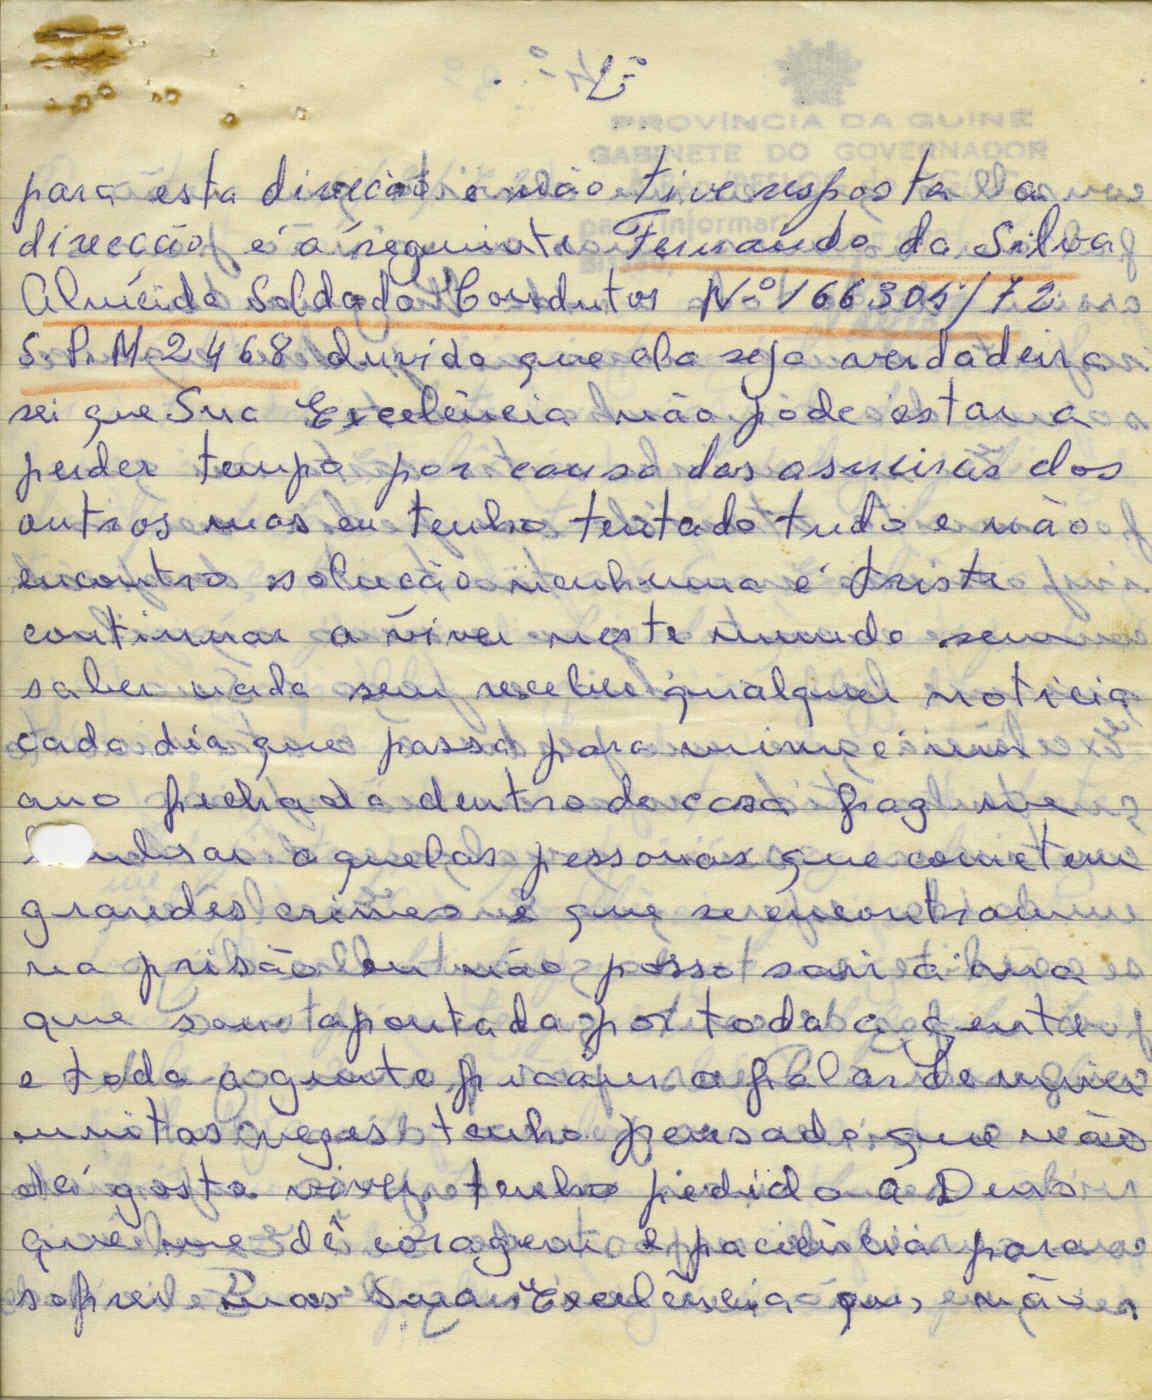 PROVÍNCIA DA GUINÉ
GABINETE DO GOVERNADOR
para esta direcção e não tive resposta a
direcção é a seguinte Fernando da Silva
Almeida Soldado Condutor N.º 166305/72
S.P.M 2468 duvido que ela seja verdadeira
sei que Sua Excelência não pode estar a
perder tempo por causa das asneiras dos
outros mas eu tenho tentado tudo e não
encontro solução nenhuma é triste
continuar a viver neste mundo sem
saber nada sem receber qualquer noticia
cada dia que passa para mim é um
ano fechada dentro de casa faz me
aquelas pessoas que cometem
grandes crimes e que se encontram
na prisão eu não posso sair á rua
que sou apontada por toda a gente
e toda a gente fica a falar de mim
muitas vezes tenho pensado que não
gosto viver tenho pedido a Deus
que me dê coragem e paciência para
sofrer mas Excelência eu, não